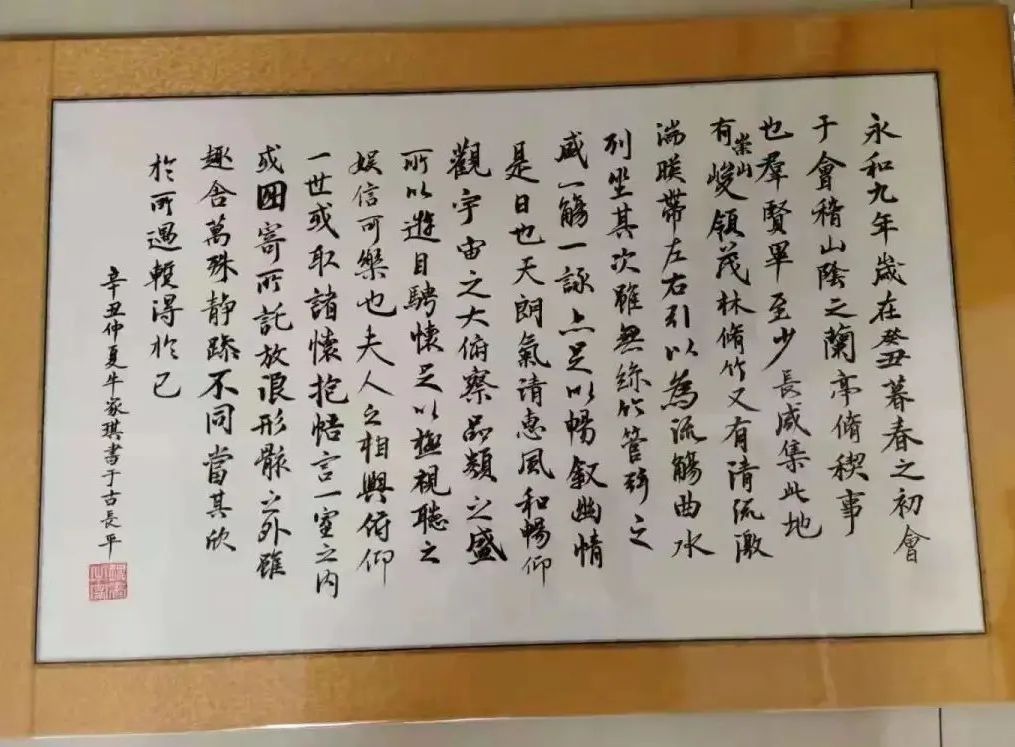 永和九年歲在癸丑暮春之初會
于會稽山陰之蘭亭脩稧事
也羣賢畢至少長咸集此地
有崇山峻領茂林脩竹又有清流激
湍暎帶左右引以為流觴曲水
列坐其次雖無絲竹管弦之
盛一觴一詠亦足以暢叙幽情
是日也天朗氣清惠風和暢仰
觀宇宙之大俯察品類之盛
所以遊目騁懷足以極視聽之
娱信可樂也夫人之相與俯仰
一世或取諸懷抱悟言一室之内
或因寄所託放浪形骸之外雖
趣舎萬殊静躁不同當其欣
於所遇輕得於己
辛丑仲夏牛家琪書于古長平